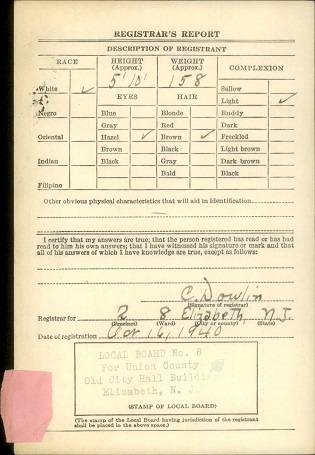 REGISTRAR'S REPORT
DESCRIPTION OF REGISTRANT
RACE HEIGHT (Approx.) WEIGHT (Approx.) COMPLEXION
5'10" 158
White ✓ Sallow
EYES HAIR Light ✓
Negro Blue Blonde Ruddy
Gray Red Dark
Oriental Hazel ✓ Brown ✓ Freckled
Brown Black Light brown
Indian Black Gray Dark brown
Bald Black
Filipino
Other obvious physical characteristics that will aid in identification
I certify that my answers are true; that the person registered has read or has had
read to him his own answers; that I have witnessed his signature or mark and that
all of his answers of which I have knowledge are true, except as follows:
C. Dowlin
(Signature of registrar)
Registrar for 2 8 Elizabeth, N. J.
(Precinct) (Ward) (City or county) (State)
Date of registration Oct 16, 1940
LOCAL BOARD No. 8
For Union County
Old City Hall Buildin
Elizabeth, N. J.
(STAMP OF LOCAL BOARD)
(The stamp of the Local Board having jurisdiction of the registrant
shall be placed in the above space.)